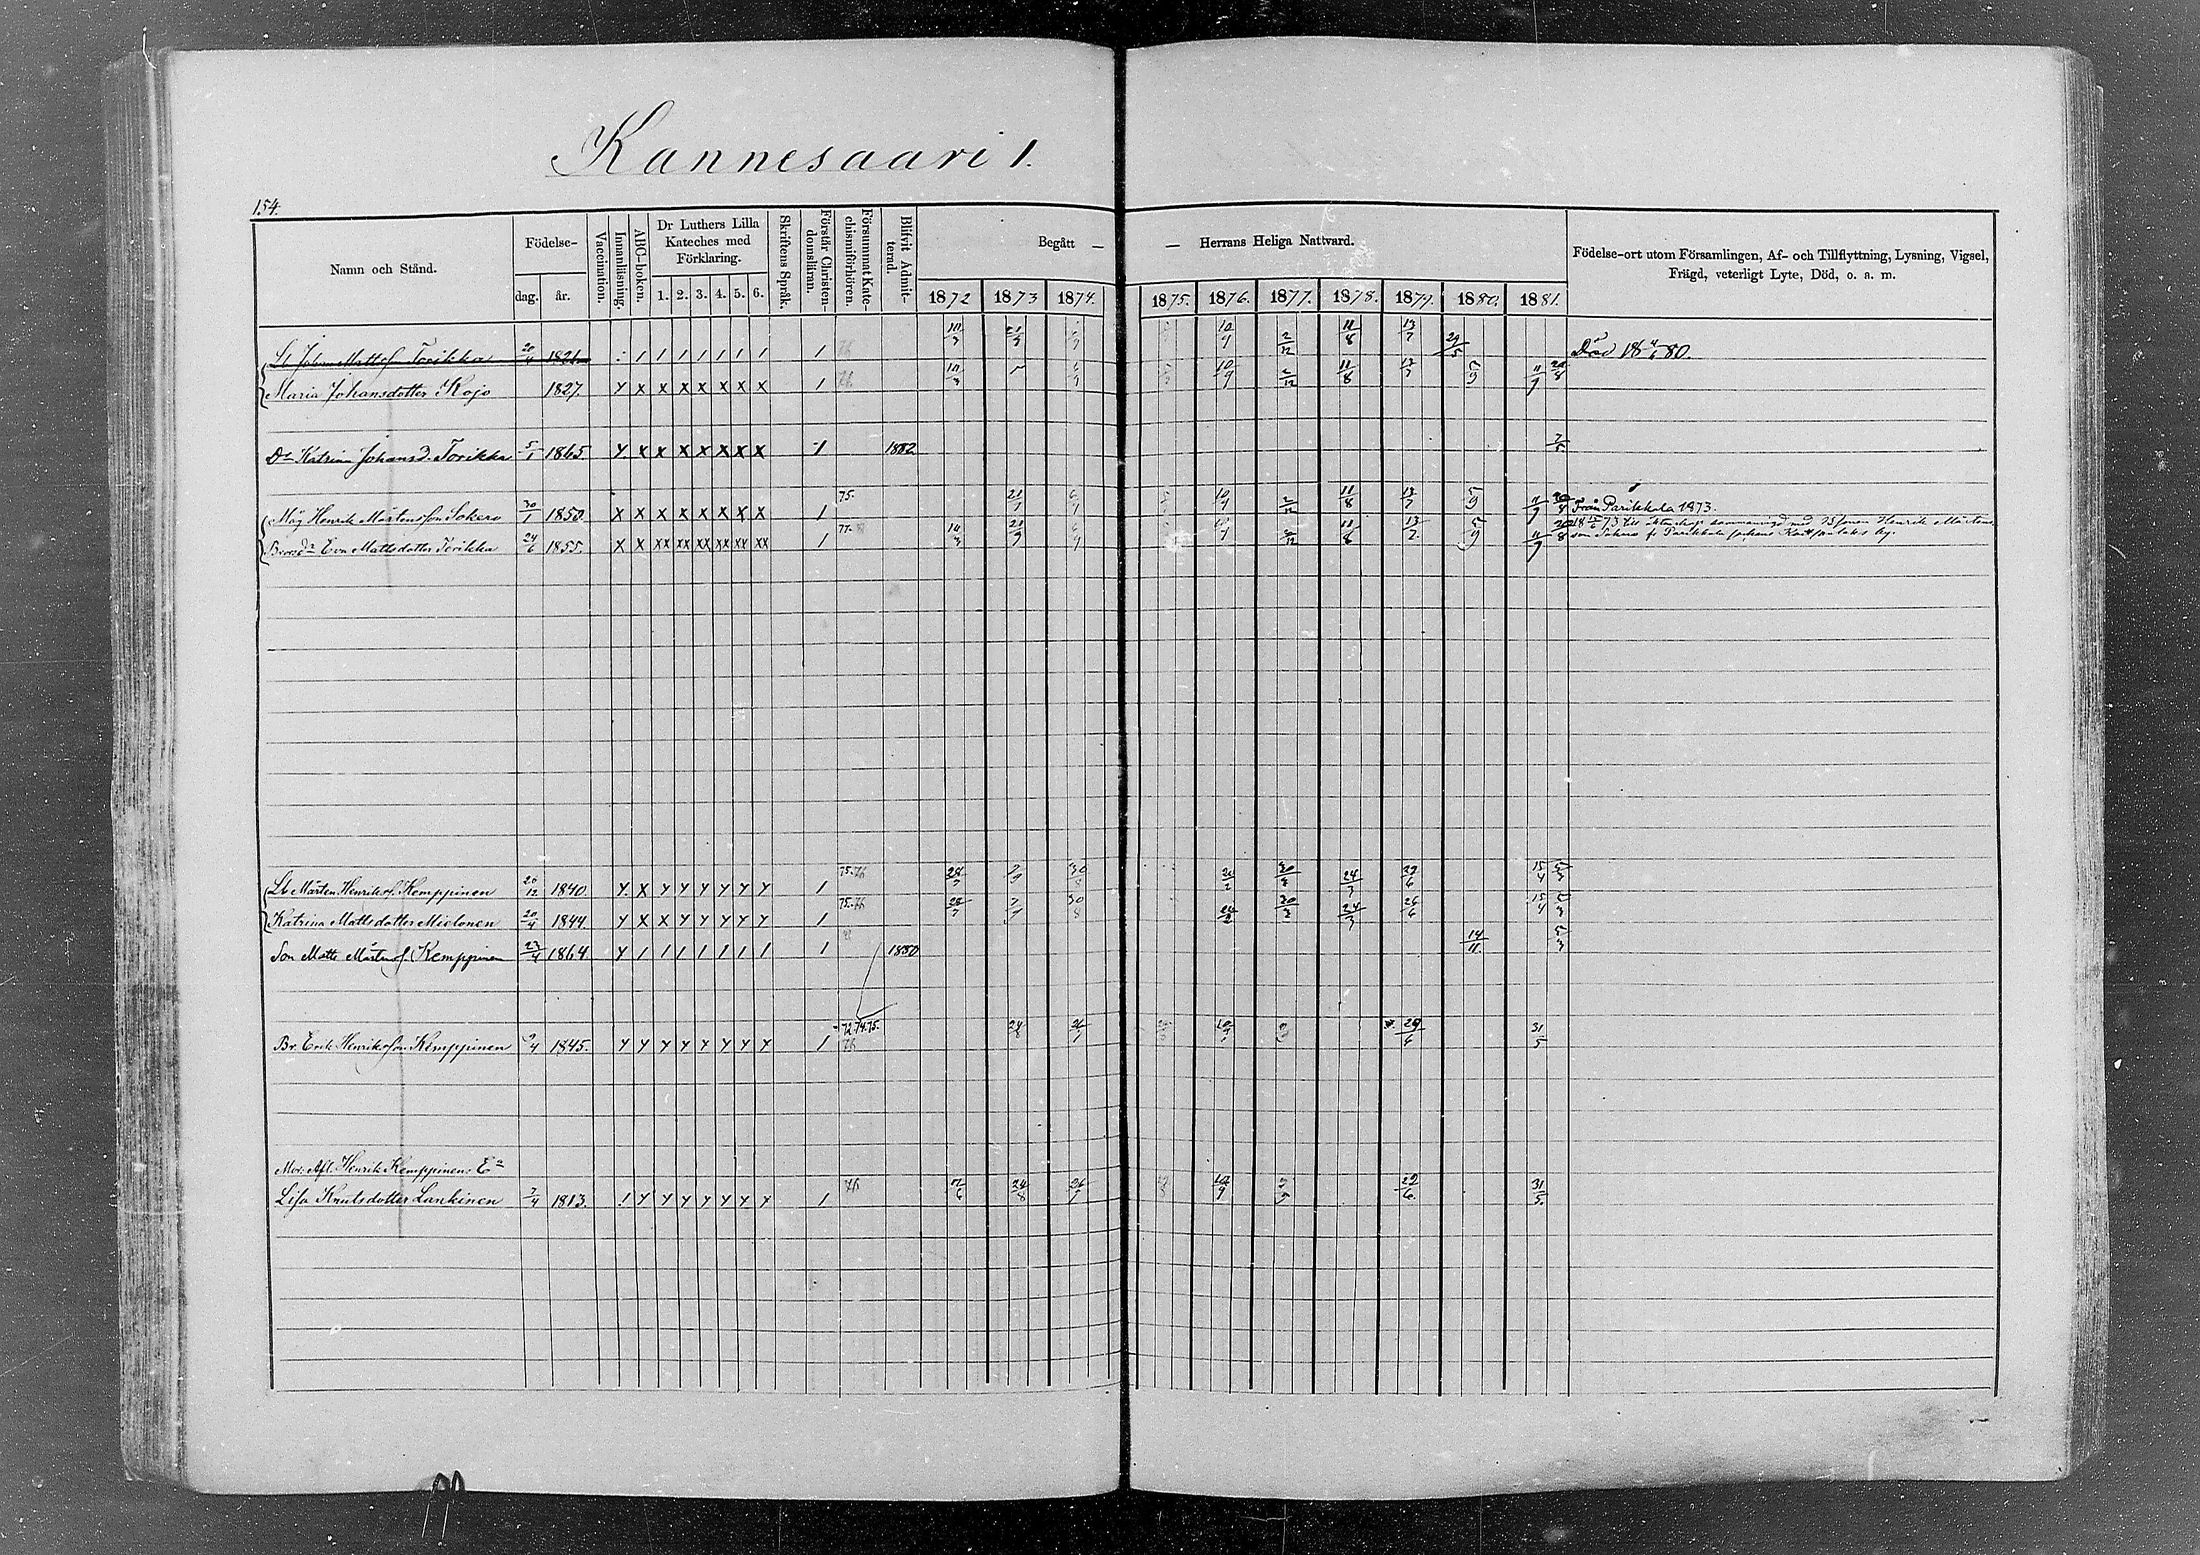 Kannesaari 1.
154.
Namn och Stånd.
Födelse-
dag. år.
Vaccination.
Innanläsning.
ABC-boken.
Dr Luthers Lilla
Kateches med
Förklaring.
1. 2. 3. 4. 5. 6.
Skriftens Språk.
Förstår Christen-
domsläran.
Försummat Kate-
chismiförhören.
Blifvit Admit-
terad.
Begått — — Herrans Heliga Nattvard.
1872 1873 1874. 1875. 1876. 1877. 1878. 1879. 1880. 1881.
Födelse-ort utom Församlingen, Af- och Tillflyttning, Lysning, Vigsel,
Frägd, veterligt Lyte, Död, o. a. m.
Lb Johan Mattsson Torikka 20/4 1821 / / / / / / / / 11/8 13/7 Död 18 4/6 80.
Maria Johansdotter Kojo 1827. Y X X X X X X X 1 10/9 2/12 11/8 13/7 5/9 11/9 28/8
Dr Katrina Johansd. Torikka 5/1 1865. Y X X X X X X X 1 1882
Måg Henrik Mårtensson Sokero 30/1 1850. X X X X X X X X 1 75. 21/9 10/9 2/12 11/8 13/7 5/9 11/9 Från Parikkala 1873.
Brorsdr Eva Mattsdotter Torikka 24/6 1855. X X XX XX XX XX XX XX 1 77. 21/9 11/8 13/7 5/9 11/9
Lb Mårten Henriks. Kemppinen 20/12 1840. Y X Y Y Y Y Y Y 1 75. 76 28/7 30/8 24/3 29/6 15/4 5/3
Katrina Mattsdotter Mielonen 20/4 1844. Y X X Y Y Y Y Y 1 75. 76 28/7 30/8 24/3 15/4
Son Matts Mårtens. Kemppinen 23/4 1864. Y / / / / / / / 1 1880 14/11 5/3
Br. Erik Henriksson Kemppinen 9/4 1845. Y Y Y Y Y Y Y Y 1 72. 74. 75. 76 24/8 10/9 29/6 31/5
Mor: Afl. Henrik Kemppinens Ea
Lisa Knutsdotter Lankinen 7/4 1813. / Y Y Y Y Y Y Y 1 76 24/8 10/9 29/6. 31/5.